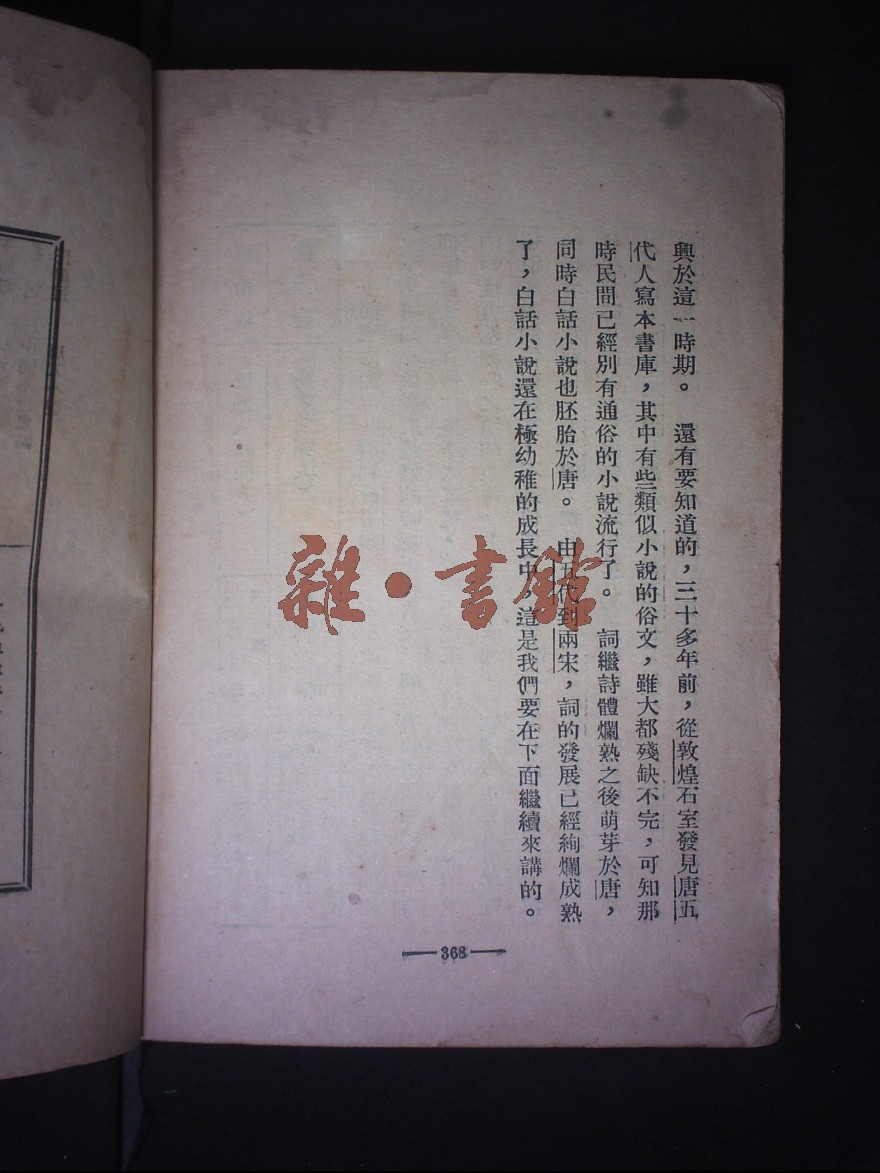 興於這一時期。 還有要知道的，三十多年前，從敦煌石室發見唐五
代人寫本書庫，其中有些類似小說的俗文，雖大都殘缺不完，可知那
時民間已經別有通俗的小說流行了。 詞繼詩體爛熟之後萌芽於唐，
同時白話小說也胚胎於唐。 由五代到兩宋，詞的發展已經絢爛成熟
了，白話小說還在極幼稚的成長中，這是我們要在下面繼續來講的。
368
雜·書館